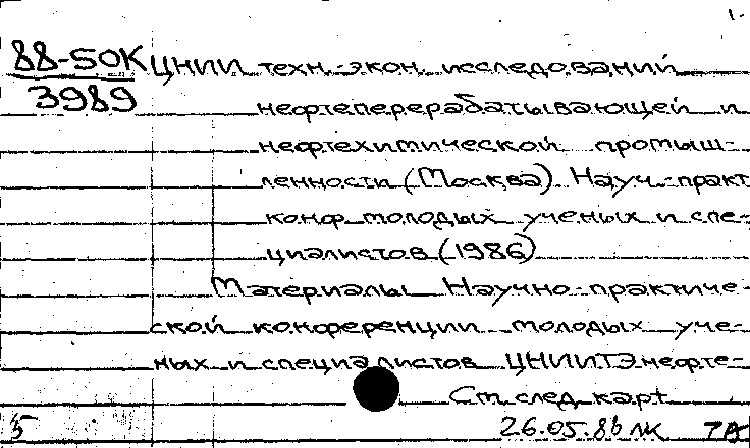 88-50К ЦНИИ техн.-экон. исследований
3989
нефтеперерабатывающей и
нефтехимической промыш-
ленности (Москва). Науч.-практ.
конф. молодых ученых и спе-
циалистов (1986)
Материалы Научно-практиче-
ской конференции молодых уче-
ных и специалистов ЦНИИТЭнефте-
См. след. карт.
5 26.05.88